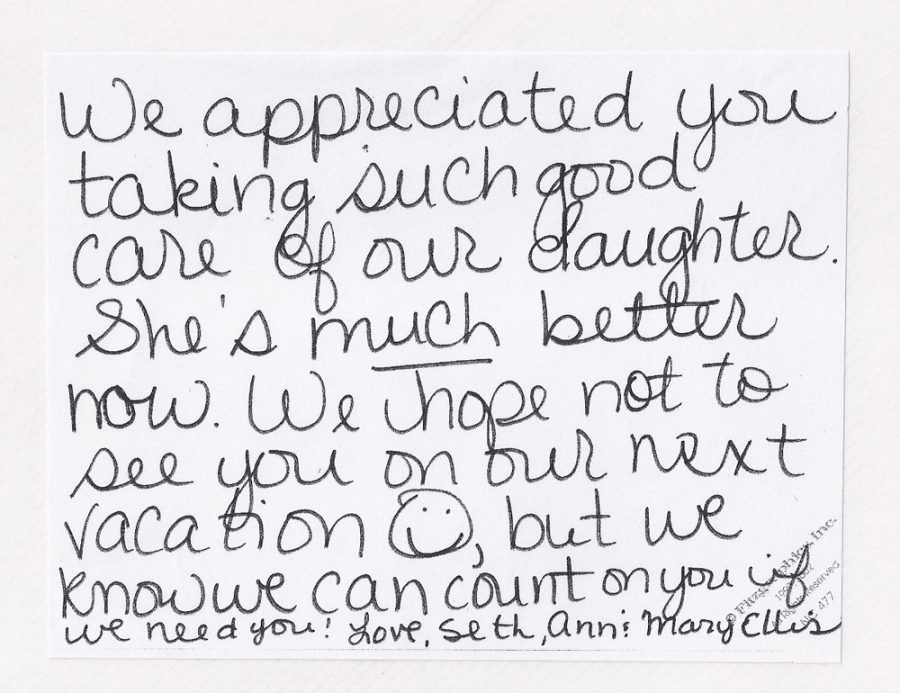 We appreciated you
taking such good
care of our daughter.
She's much better
now. We hope not to
see you on our next
vacation ☺, but we
know we can count on you if
we need you! Love, Seth, Ann & Mary Ellis
© Fitzgraphics, Inc.
Reserved
477